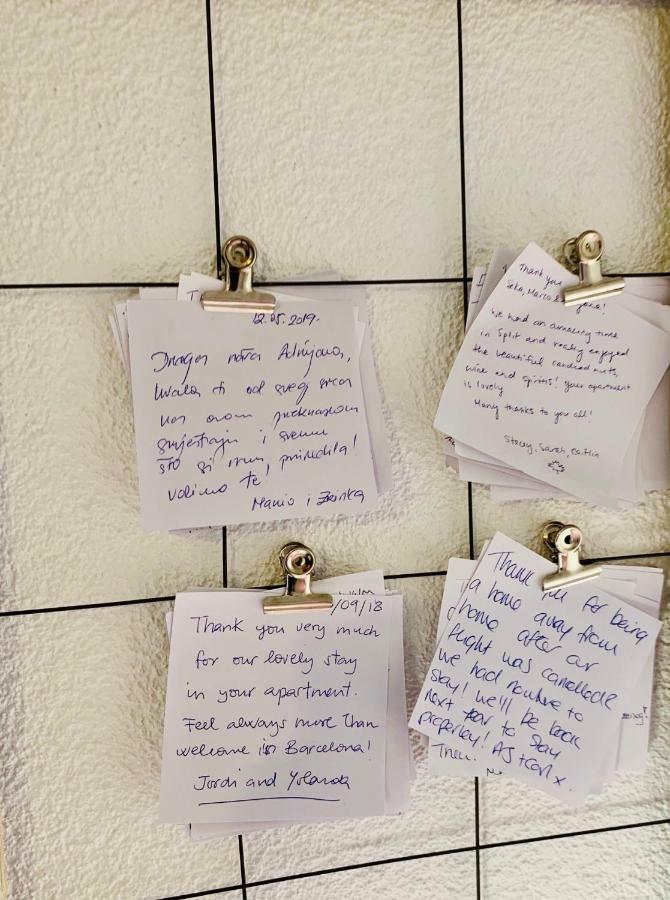 12.05.2019.
Draga naša Adrijana,
hvala ti od sveg srca
na ovom prekrasnom
smještaju i svemu
što si nam priredila!
volimo te!
Mario i Zrinka
Thank you
Seka, Marco &
We had an amazing time
in Split and really enjoyed
the beautiful candied nuts,
wine and spirits! your apartment
is lovely
Many thanks to you all!
Stacey, Sarah, Caitlin
/09/18
Thank you very much
for our lovely stay
in your apartment.
Feel always more than
welcome in Barcelona!
Jordi and Yolanda
Thank for being
a home away from
home after our
flight was cancelled &
we had nowhere to
stay! we'll be back
next year to stay
properly! AJ + Carl x.